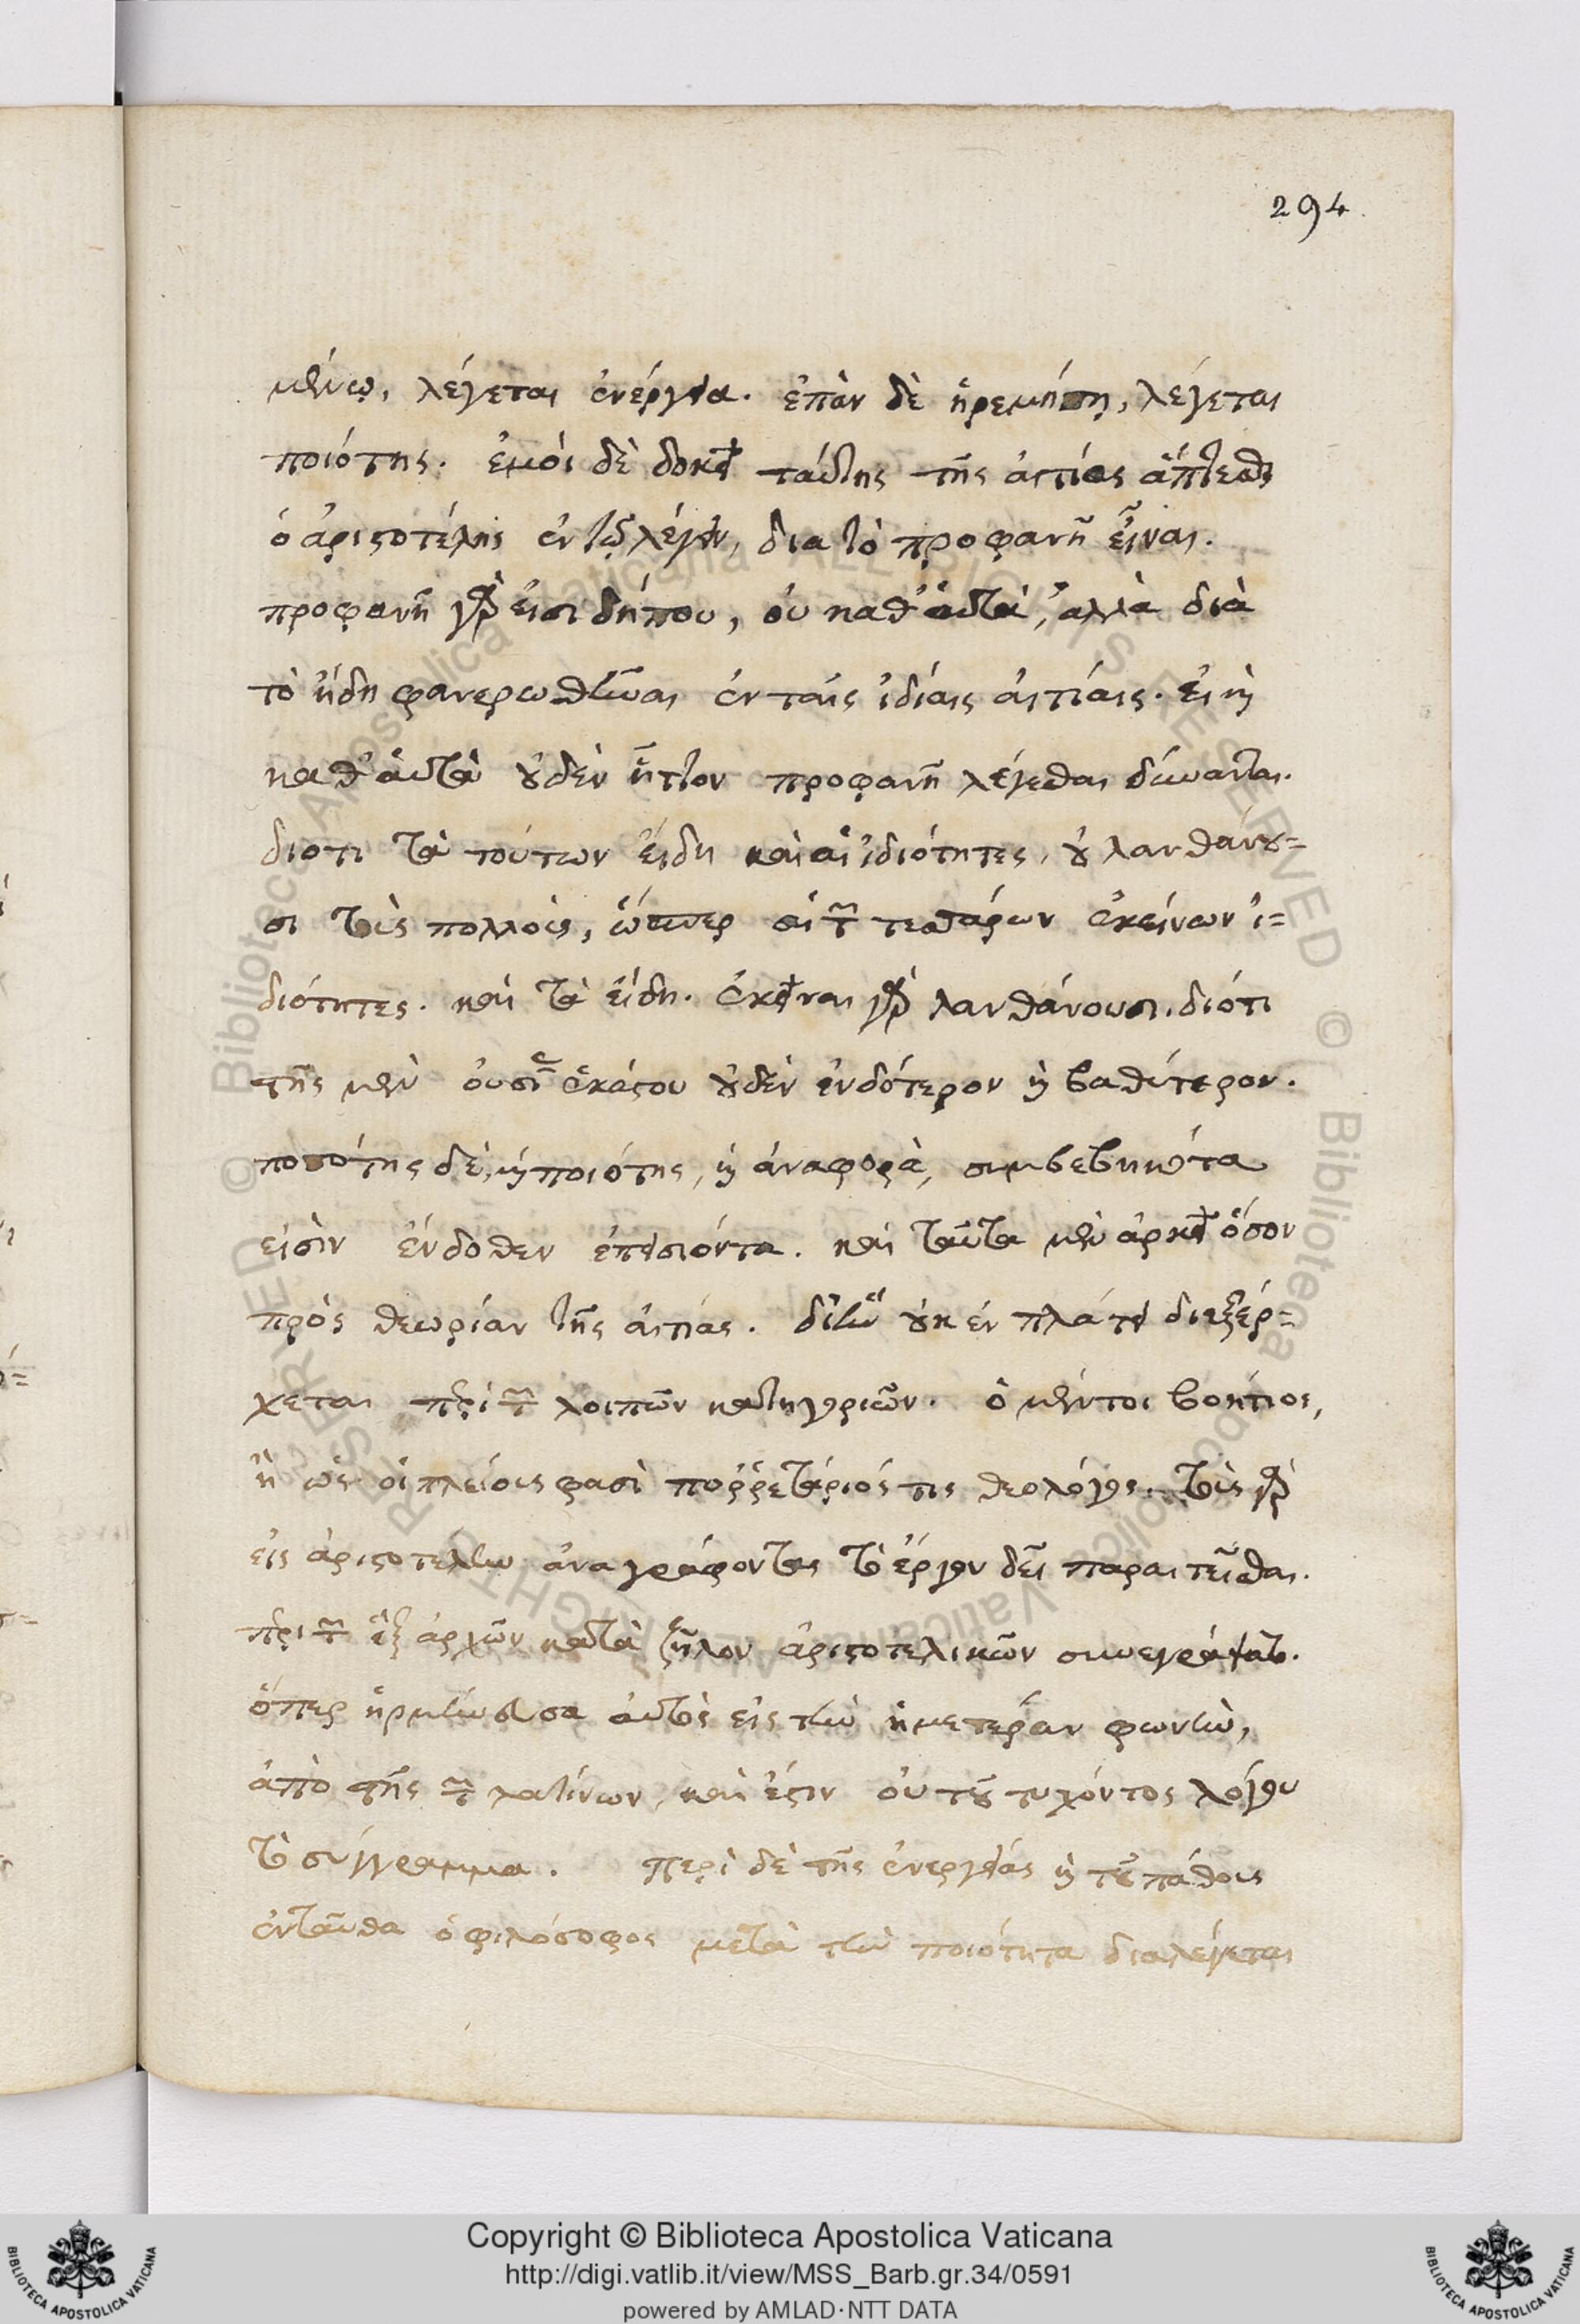 294
μένῳ, λέγεται ἐνέργεια. ἐπὰν δὲ ἠρεμήσῃ, λέγεται
ποιότης. ἐμοὶ δὲ δοκεῖ ταύτης τῆς αἰτίας ἅπτεσθαι
ὁ ἀριστοτέλης ἐν τῷ λέγειν, δια τὸ προφανῆ εἶναι.
προφανῆ γὰρ εἰσι δήπου, οὐ καθ' αὑτὰ, ἀλλὰ διὰ
τὸ ἤδη φανερωθῆναι ἐν ταῖς ἰδίαις αἰτίαις. εἰ καὶ
καθ' αὑτὰ οὐδὲν ἧττον προφανῆ λέγεσθαι δύνανται.
διοτι τὰ τούτων εἴδη καὶ αἱ ἰδιότητες, οὐ λανθάνου=
σι τοὺς πολλοὺς, ὥσπερ αἱ τῶν τεσσάρων ἐκείνων ἰ=
διότητες. καὶ τὰ εἴδη. ἐκεῖναι γὰρ λανθάνουσι. διότι
τῆς μὲν οὐσίας ἑκάστου οὐδὲν ἐνδότερον καὶ βαθύτερον.
ποσότης δὲ, καὶ ποιότης, καὶ ἀναφορὰ, συμβεβηκότα
εἰσὶν ἔνδοθεν ἐπεισιόντα. καὶ ταῦτα μὲν ἀρκεῖ ὅσον
πρὸς θεωρίαν τῆς αἰτίας. δι' ἣν οὐκ ἐν πλάτει διεξέρ=
χεται περὶ τῶν λοιπῶν κατηγοριῶν. ὁ μέντοι βοήτιος,
ἢ ὡς οἱ πλείους φασὶ πορῥετάριός τις θεολόγος. τοὺς γὰρ
εἰς ἀριστοτέλην ἀναγράφοντας τὸ ἔργον δεῖ παραιτεῖσθαι.
περὶ τῶν ἓξ ἀρχῶν κατὰ ζῆλον ἀριστοτελικῶν συνεγράψατο.
ὅπερ ἡρμήνευσα αὐτὸς εἰς τὴν ἡμετέραν φωνὴν,
ἀπὸ τῆς τῶν λατίνων, καὶ ἔστιν οὐ τοῦ τυχόντος λόγου
τὸ σύγγραμμα. περὶ δὲ τῆς ἐνεργείας καὶ τοῦ πάθους
ἐνταῦθα ὁ φιλόσοφος μετὰ τὴν ποιότητα διαλέγεται
Copyright © Biblioteca Apostolica Vaticana
http://digi.vatlib.it/view/MSS_Barb.gr.34/0591
powered by AMLAD·NTT DATA